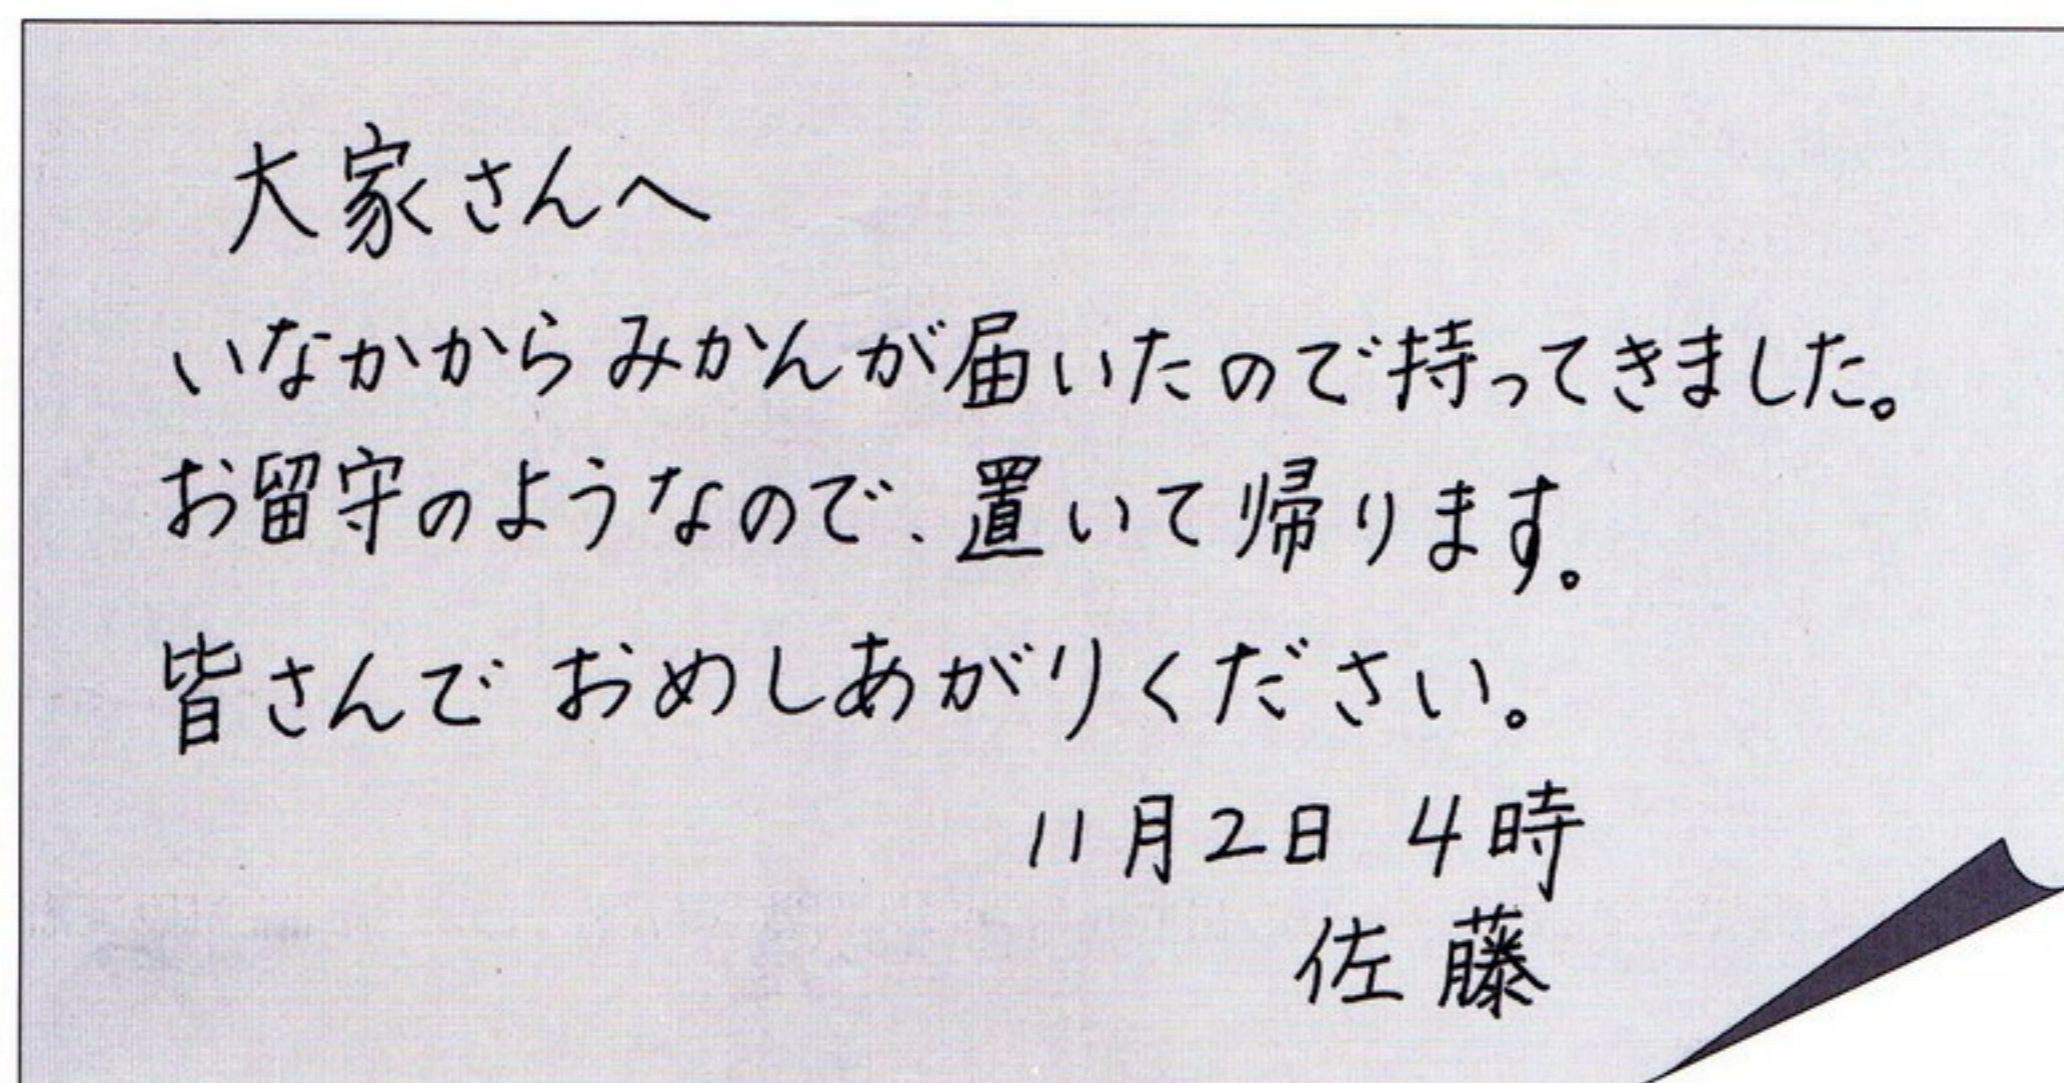 大家さんへ
いなかからみかんが届いたので持ってきました。
お留守のようなので、置いて帰ります。
皆さんでおめしあがりください。
11月2日 4時
佐藤